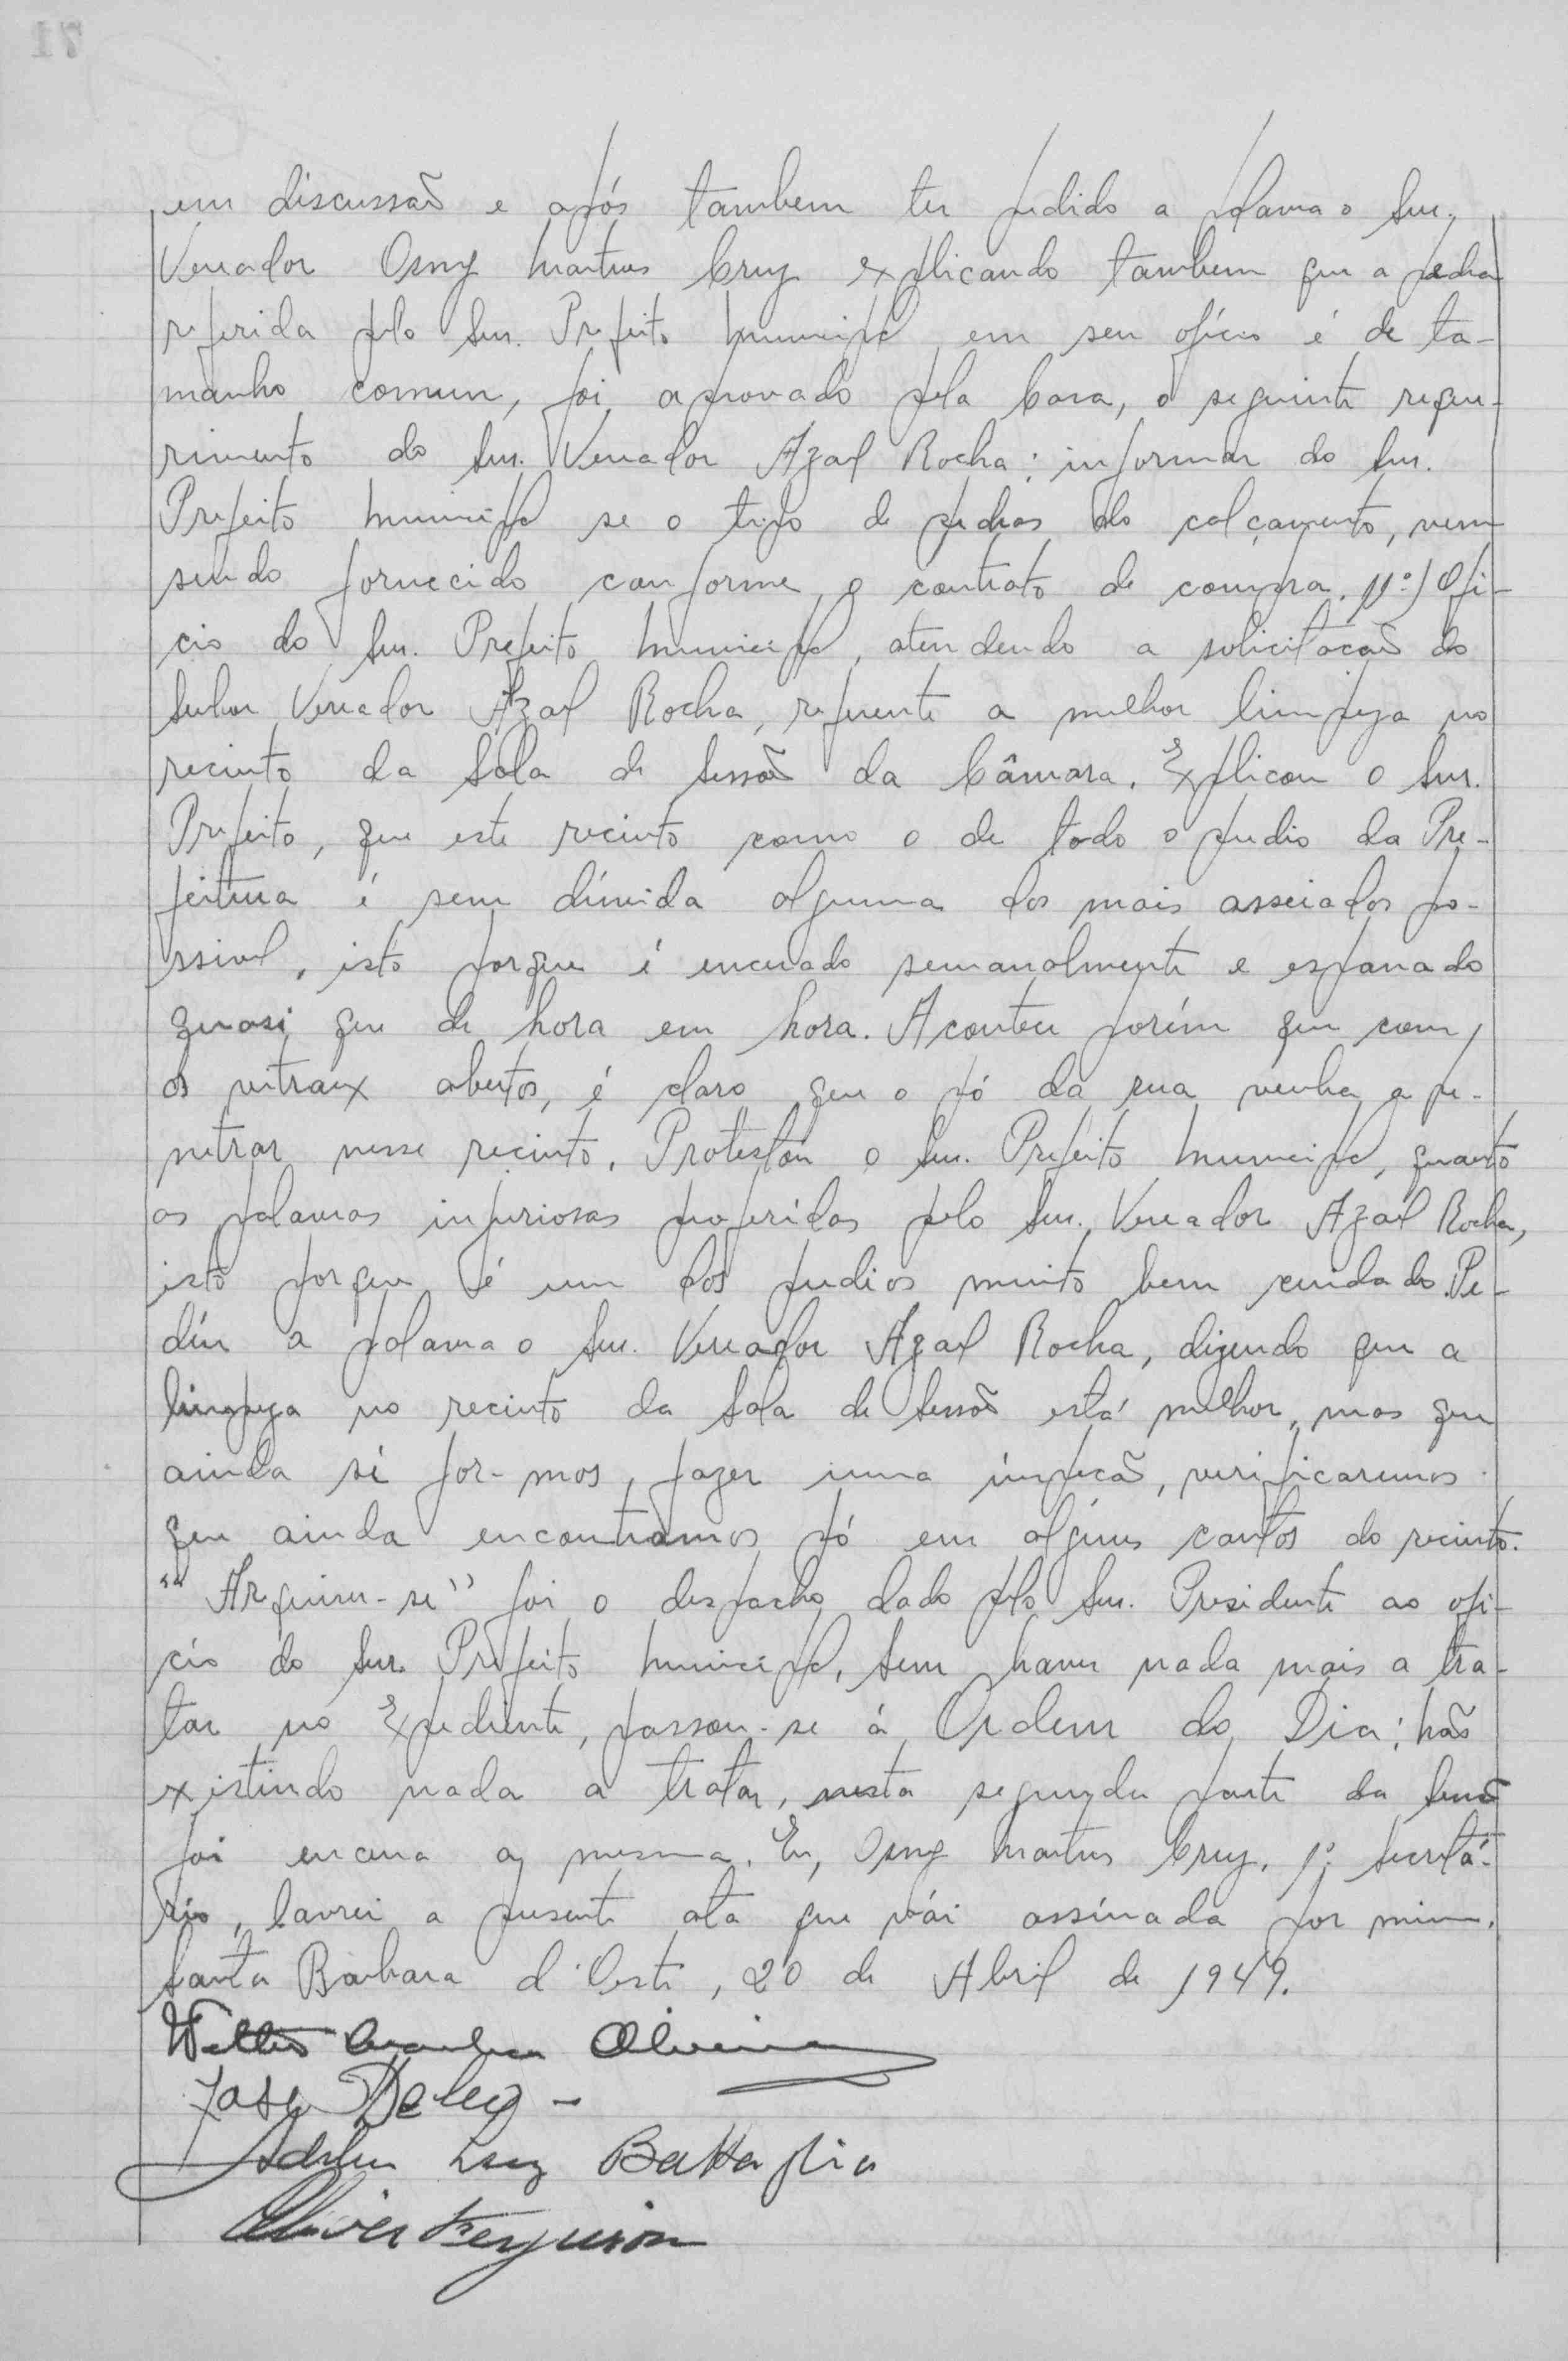 17
em discussão e após tambem ter pedido a palavra o Snr.
Vereador Osny Martins Cruz explicando tambem que a pedra
referida pelo Snr. Prefeito Municipal em seu ofício é de ta-
manho comum, foi aprovado pela Casa, o seguinte reque-
rimento do Snr. Vereador Azael Rocha: informar do Snr.
Prefeito Municipal se o tipo de pedras do calçamento, vem
sendo fornecido conforme o contrato de compra. 11º) Ofi-
cio do Snr. Prefeito Municipal, atendendo a solicitacão do
Senhor Vereador Azael Rocha, referente a melhor limpeza no
recinto da Sala de Sessão da Câmara. Explicou o Snr.
Prefeito, que este recinto como o de todo o predio da Pre-
feitura é sem dúvida alguma dos mais asseiados po-
ssivel, istó porque é encerado semanalmente e espanado
quasi que de hora em hora. Acontece porém que com
os vitraux abertos, é claro que o pó da rua venha a pe-
netrar nesse recinto. Protestou o Snr. Prefeito Municipal, quanto
as palavras injuriosas proferidas pelo Snr. Vereador Azael Rocha,
istó porque é um dos predios muito bem cuidado. Pe-
diu a palavra o Snr. Vereador Azael Rocha, dizendo que a
limpeza no recinto da Sala de Sessão está melhor, mas que
ainda sé for-mos, fazer uma inspecão, verificaremos
que ainda encontramos pó em alguns cantos do recinto.
"Arquive-se" foi o despacho dado pelo Snr. Presidente ao ofi-
cio do Snr. Prefeito Municipal. Sem haver nada mais a tra-
tar no Expediente, passou-se á Ordem do Dia: Não
existindo nada a tratar, nesta segunda parte da Sessão
foi encerra a mesma. Eu, Osny Martins Cruz, 1º Secretá-
rio, lavrei a presente ata que vái assinada por mim.
Santa Barbara d'Oeste, 20 de Abril de 1949.
Oliveira
José
Luiz Battaglia
Ferguson